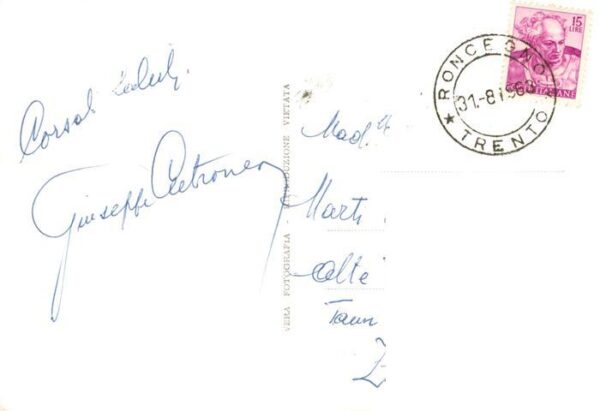 Corsal saluti
Giuseppe
VERA FOTOGRAFIA - RIPRODUZIONE VIETATA
Mad
Marti
Alte
15
LIRE
ITALIANE
RONCEGNO
31.-8 1963
★ TRENTO